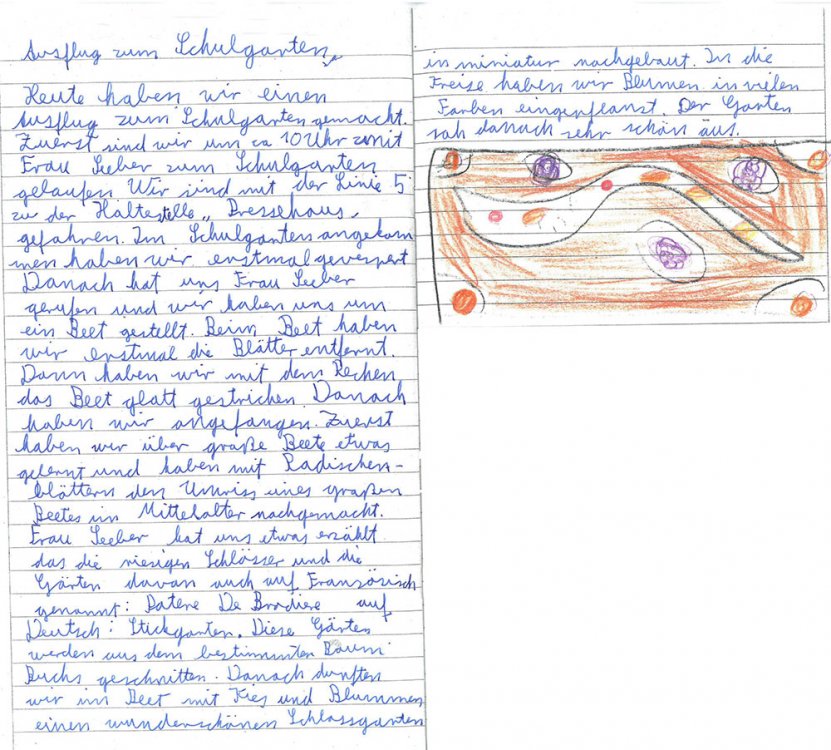 Ausflug zum Schulgarten
Heute haben wir einen
Ausflug zum Schulgarten gemacht.
Zuerst sind wir um ca 10 Uhr mit
Frau Seeber zum Schulgarten
gelaufen Wir sind mit der Linie 5
zu der Haltestelle „Pressehaus"
gefahren. Im Schulgarten angekom
men haben wir erstmal gevespert
Danach hat uns Frau Seeber
gerufen und wir haben uns um
ein Beet gestellt. Beim Beet haben
wir erstmal die Blätter entfernt.
Dann haben wir mit dem Rechen
das Beet glatt gestrichen Danach
haben wir angefangen. Zuerst
haben wir über große Beete etwas
gelernt und haben mit Radischen-
blättern den Umriss eines großen
Beetes im Mittelalter nachgemacht.
Frau Seeber hat uns etwas erzählt
das die riesigen Schlösser und die
Gärten davan auch auf Französisch
genannt: Patere De Brodiere auf
Deutsch: Stickgarten. Diese Gärten
werden aus dem bestimmten Baum
Buchs geschnitten. Danach durften
wir im Beet mit Kies und Blummen
einen wunderschönen Schlossgarten
in miniatur nachgebaut. In die
Kreise haben wir Blumen in vielen
Farben eingepflanzt. Der Garten
sah danach sehr schön aus.